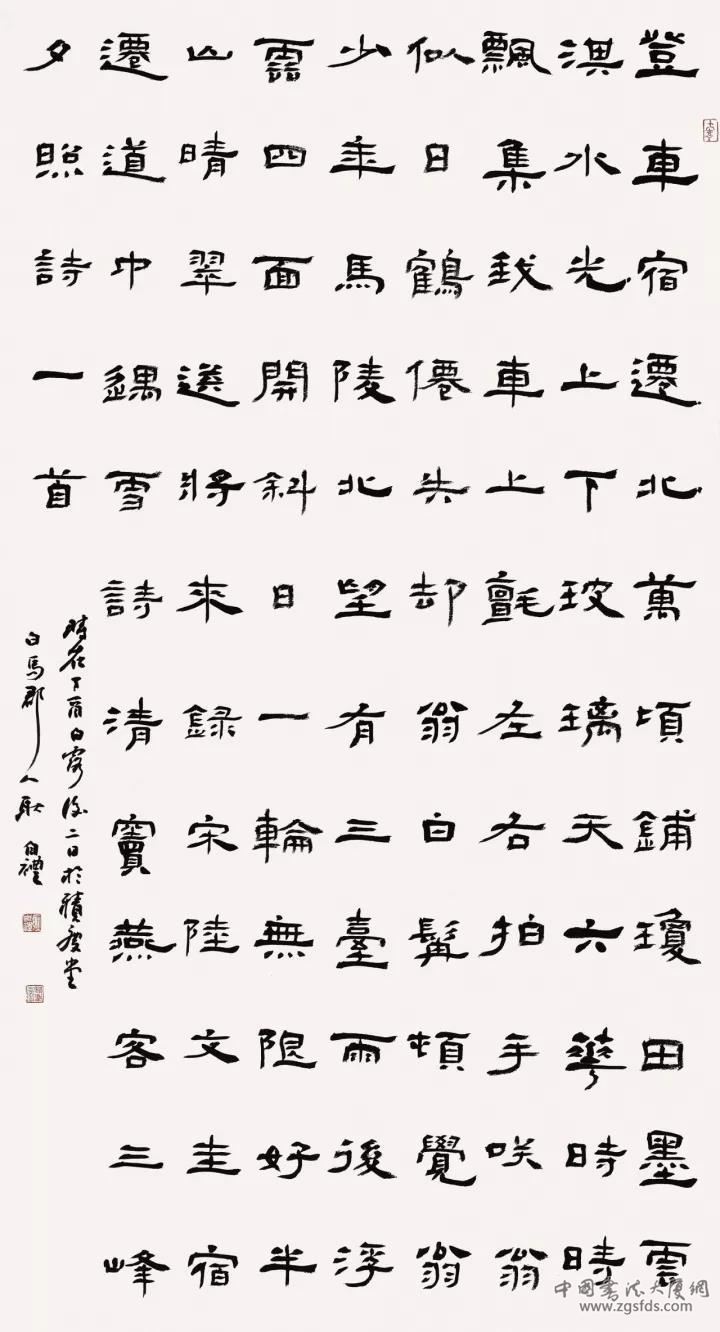 登車宿遷北萬頃鋪瓊田墨雲
淇水光上下玻璃天六華時時
飄集我車上氈左右拍手咲翁
似日鶴僊失却翁白髯頓覺翁
少年馬陵北望有三臺雨後浮
雲四面開斜日一輪無限好半
山晴翠送將來録宋陸文圭宿
遷道中遇雪詩清竇燕客三峰
夕照詩一首
時在丁酉白露後二日於積慶堂
白馬郡人耿自禮
中國書法大廈網
www.zgsfds.com